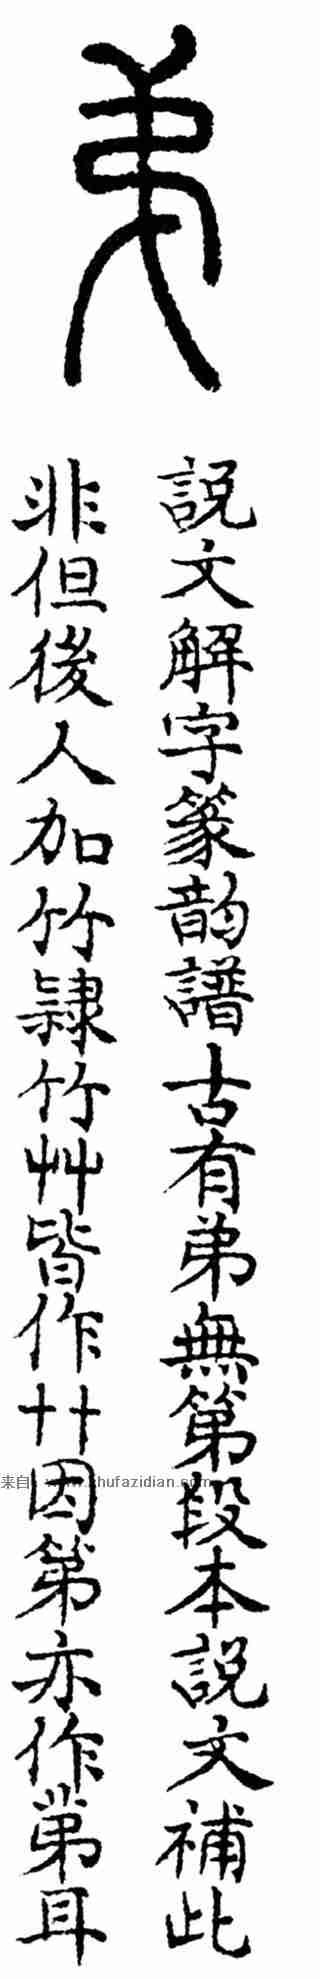 弟
說文解字篆韵譜古有弟無第段本說文補此
非但後人加竹隸竹艸皆作艹因第亦作苐耳
来自：www.shufazidian.com